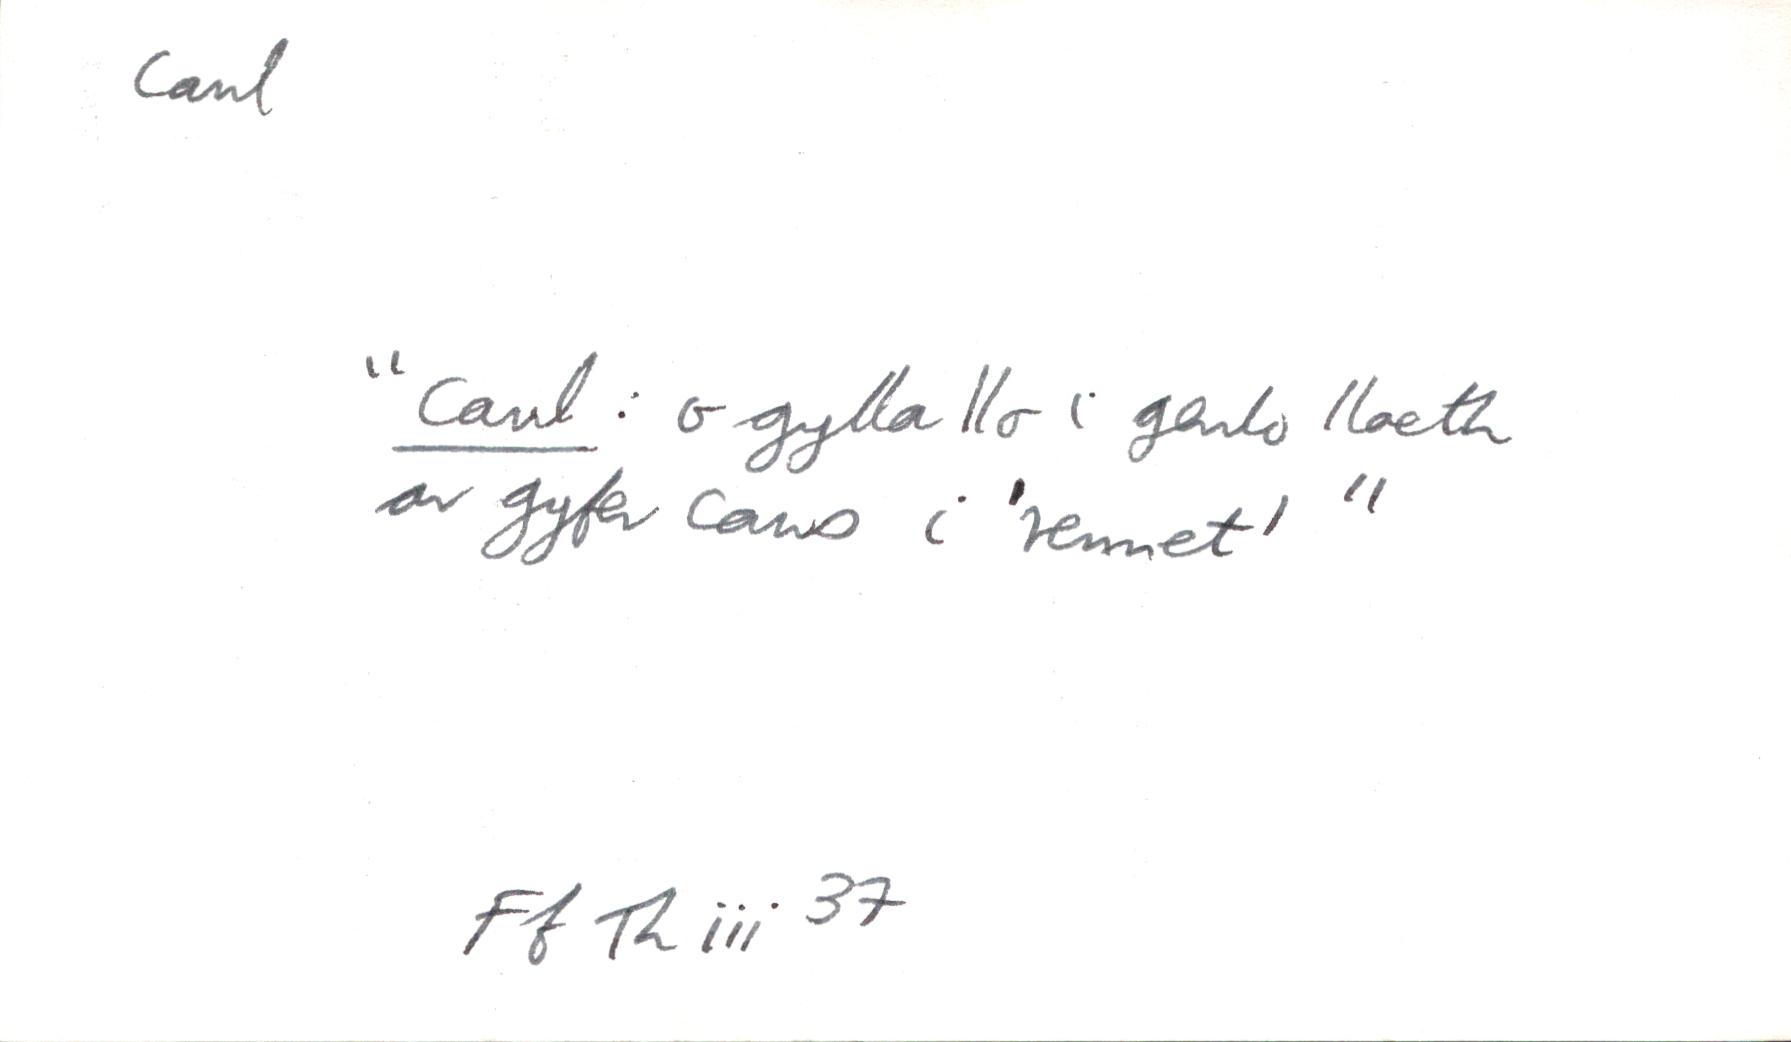 Caul
"Caul: o gylla llo i geulo llaeth
ar gyfer caws i 'rennet'"
Ff Th iii 37